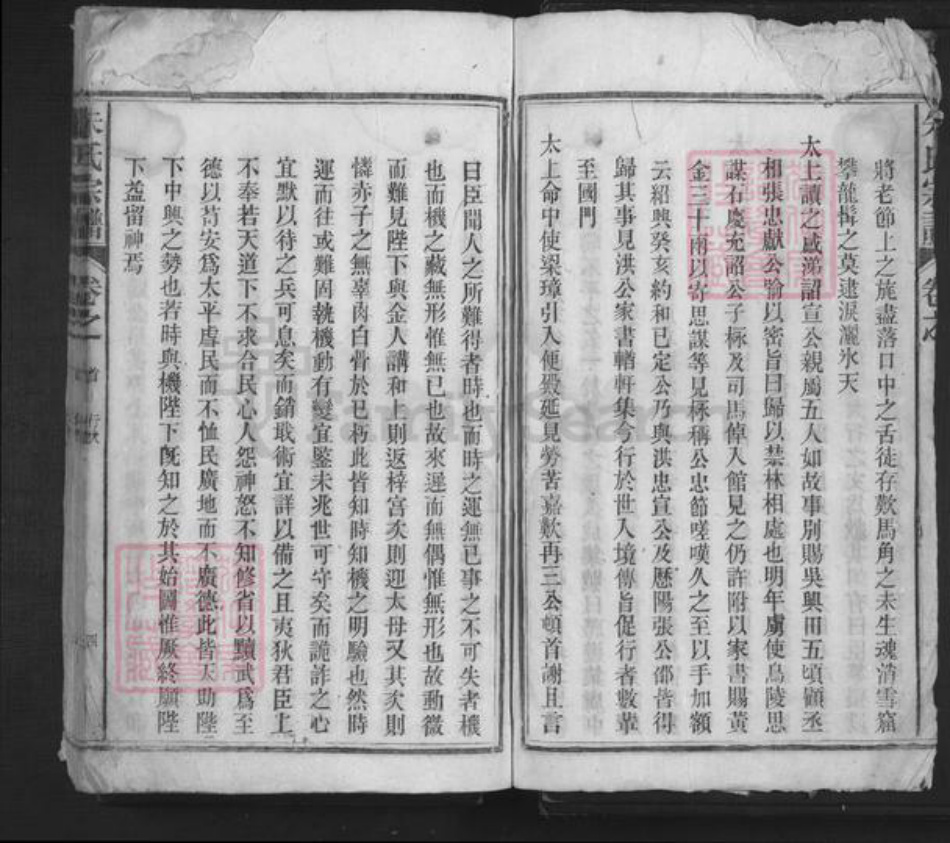 將老節上之旄盡落口中之舌徒存歎馬角之未生魂消雪窟
攀龍髯之莫逮淚灑氷天
太上讀之感涕詔宣公親屬五人如故事別賜吳興田五頃顧丞
相張忠獻公諭以密旨曰歸以禁林相處也明年虜使烏陵思
謀石慶充詔公子𣏌及司馬倬入館見之仍許附以家書賜黃
金三十兩以寄思謀等見𣏌稱公忠節嗟嘆久之至以手加額
云紹興癸亥約和已定公乃與洪忠宣公及歷陽張公邵皆得
歸其事見洪公家書輶軒集今行於世入境傳旨促行者數輩
至國門
太上命中使梁璋引入便殿延見勞苦嘉歎再三公頓首謝且言
曰臣聞人之所難得者時也而時之運無已事之不可失者機
也而機之藏無形惟無已也故來遲而無偶惟無形也故動微
而難見陛下與金人講和上則返梓宮矣則迎太母又其矣則
憐赤子之無辜肉白骨於已朽此皆知時知機之明驗也然時
運而往或難固執機動有變宜鑒未兆世可守矣而詭詐之心
宜默以待之兵可息矣而銷戢術宜詳以備之且夷狄君臣上
不奉若天道下不求合民心人怨神怒不知修省以黷武爲至
德以苟安爲太平虐民而不恤民廣地而不廣德此皆天助陛
下中興之勢也若時與機陛下旣知之於其始圖惟厥終願陛
下益留神焉
朱氏宗譜 卷之一